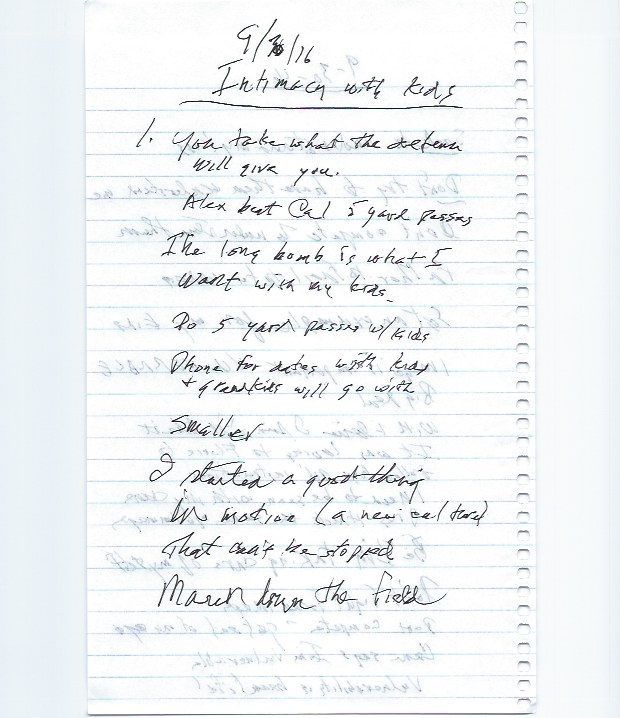 9/30/16
Intimacy with kids
1. You take what the defense
will give you.
Alex beat Cal 5 yard passes
The long bomb is what I
want with my kids.
Do 5 yard passes w/kids
Phone for dates with kids
+ grandkids will go with
smaller
I started a good thing
in motion (a new culture)
That can't be stopped
March down the field